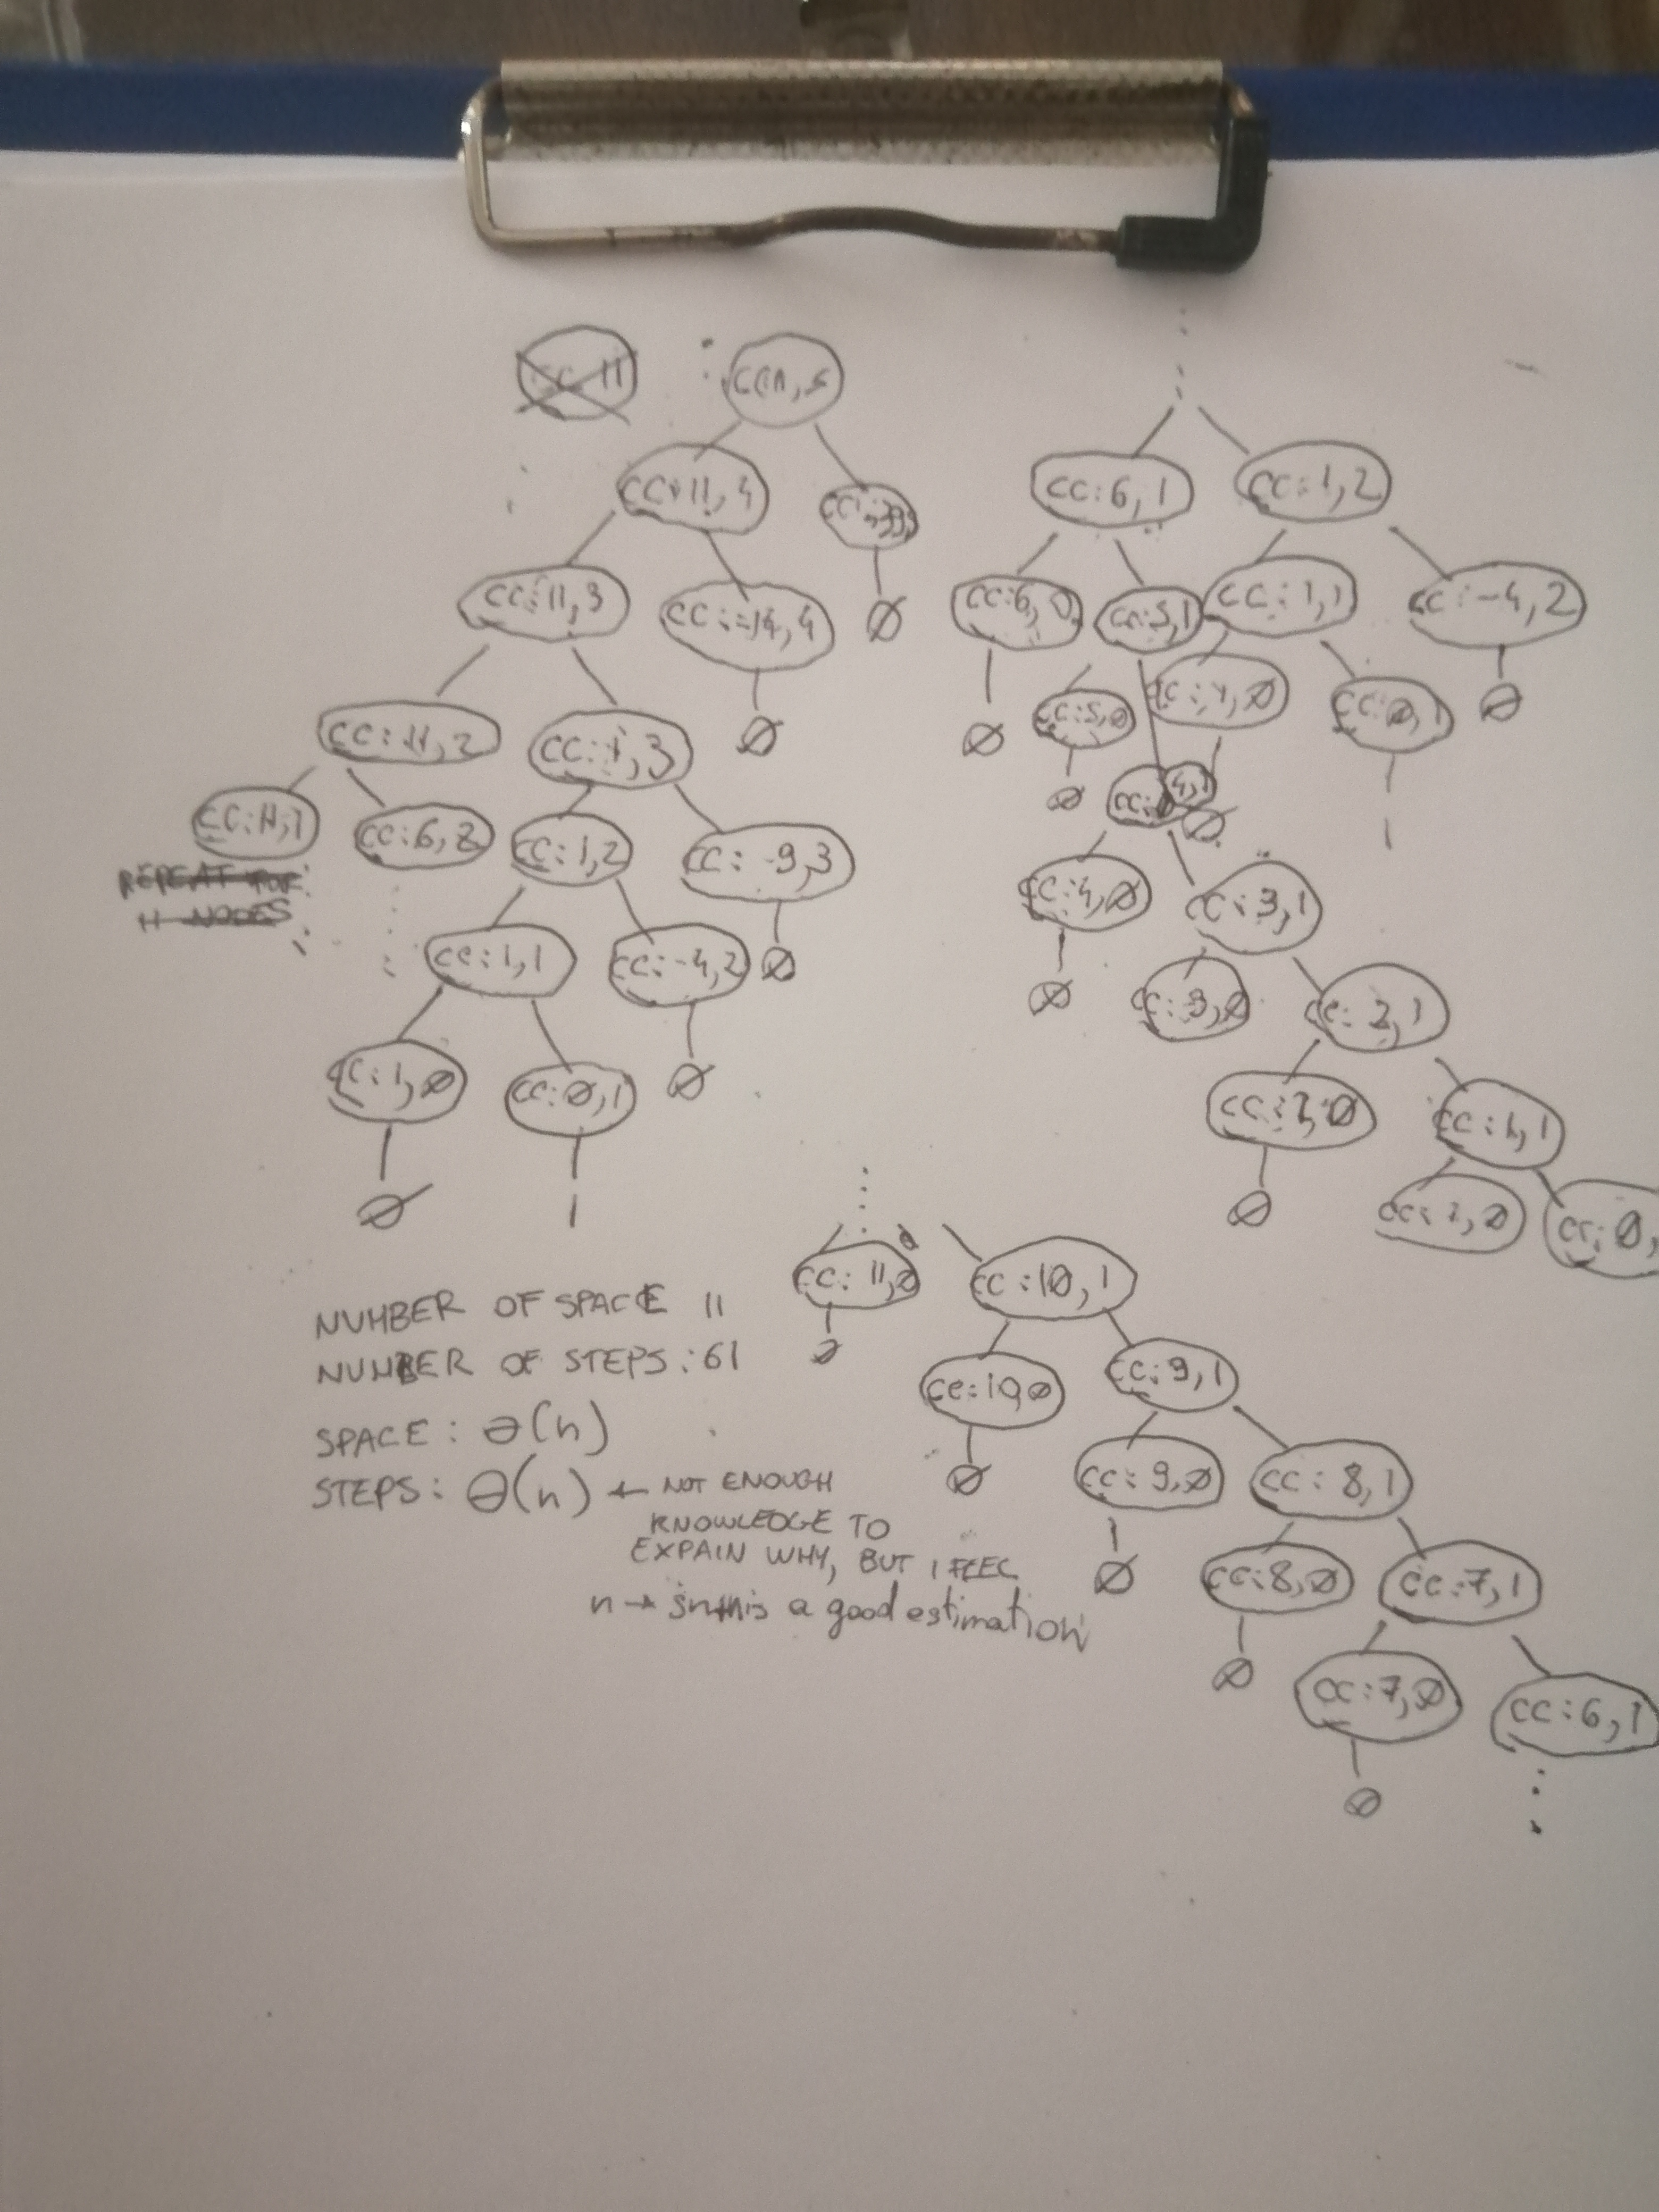 CC 11
CC 11, 5
CC: 11, 4
CC: -39, 5
Ø
CC: 11, 3
CC: -14, 4
Ø
CC: 11, 2
CC: 1, 3
CC: 11, 1
CC: 6, 2
CC: 1, 2
CC: -9, 3
Ø
REPEAT FOR
11 NODES
CC: 1, 1
CC: -4, 2
Ø
CC: 1, Ø
CC: Ø, 1
Ø
1
CC: 6, 1
CC: 1, 2
CC: 6, Ø
CC: 5, 1
CC: 1, 1
CC: -4, 2
Ø
CC: 5, Ø
CC: 1, Ø
CC: Ø, 1
Ø
Ø
CC: 4, 1
Ø
1
CC: 4, Ø
CC: 3, 1
Ø
CC: 3, Ø
CC: 2, 1
CC: 2, Ø
CC: 1, 1
Ø
CC: 1, Ø
CC: Ø,
CC: 11, Ø
CC: 10, 1
Ø
CC: 10, Ø
CC: 9, 1
Ø
CC: 9, Ø
CC: 8, 1
Ø
CC: 8, Ø
CC: 7, 1
Ø
CC: 7, Ø
CC: 6, 1
Ø
NUMBER OF SPACE 11
NUMBER OF STEPS: 61
SPACE: Θ(n)
STEPS: Θ(n) ← NOT ENOUGH
KNOWLEDGE TO
EXPAIN WHY, BUT I FEEL
n → is a good estimation